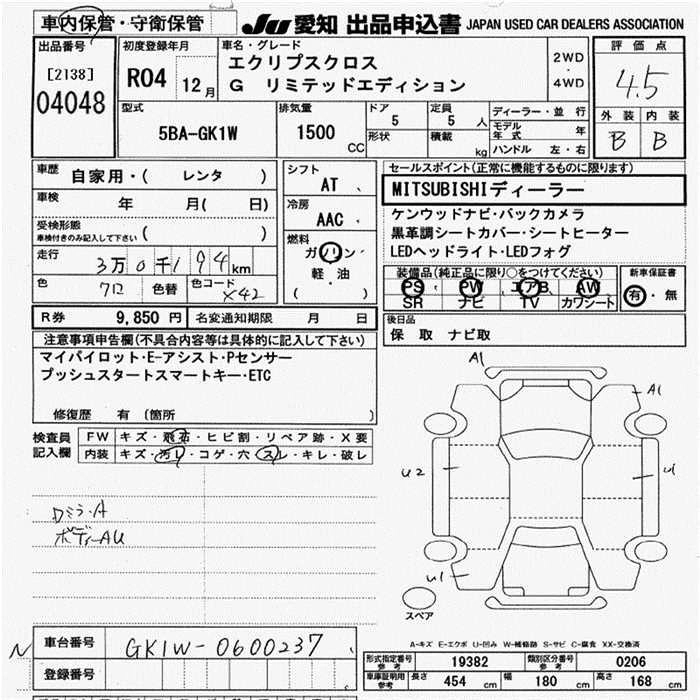 車内保管・守衛保管 JU 愛知 出品申込書 JAPAN USED CAR DEALERS ASSOCIATION
出品番号
[2138]
04048
初度登録年月
R04 12月
車名・グレード
エクリプスクロス
G リミテッドエディション
2WD
・
4WD
評価点
4.5
外装 内装
B B
型式
5BA-GK1W
排気量
1500
CC
ドア
5
形状
定員
5 人
積載
kg
ディーラー・並行
モデル年式 年
ハンドル 左・右
車歴 自家用・( レンタ )
車検 年 月( 日)
受検形態
車検付きのみ記入して下さい ( )
走行 3万0千194km
色 クロ 色替 色コード X42
シフト
AT
冷房
AAC
燃料
ガソリン
軽・油
( )
セールスポイント(正常に機能するものに限り)
MITSUBISHIディーラー
ケンウッドナビ・バックカメラ
黒革調シートカバー・シートヒーター
LEDヘッドライト・LEDフォグ
装備品(純正品に限り○をつけてください)
PS PW エアB AW
SR ナビ TV カワシート
新車保証書
有・無
R券 9,850円 名変通知期限 月 日
後日品
保 取 ナビ取
注意事項申告欄(不具合内容等は具体的に記入して下さい)
マイパイロット・E-アシスト・Pセンサー
プッシュスタートスマートキー・ETC
修復歴 有 (箇所 )
検査員記入欄
FW キズ・飛石・ヒビ割・リペア跡・X要
内装 キズ・汚レ・コゲ・穴・スレ・キレ・破レ
ロミラ・A
ボディーAU
A1
A1
U2
U1
U1
スペア
A-キズ E-エクボ U-凹み W-補修跡 S-サビ C-腐食 XX-交換済
N 車台番号 GK1W-0600237
登録番号
形式指定番号参考 19382 類別区分番号参考 0206
車庫証明用参考 長さ 454 cm 幅 180 cm 高さ 168 cm